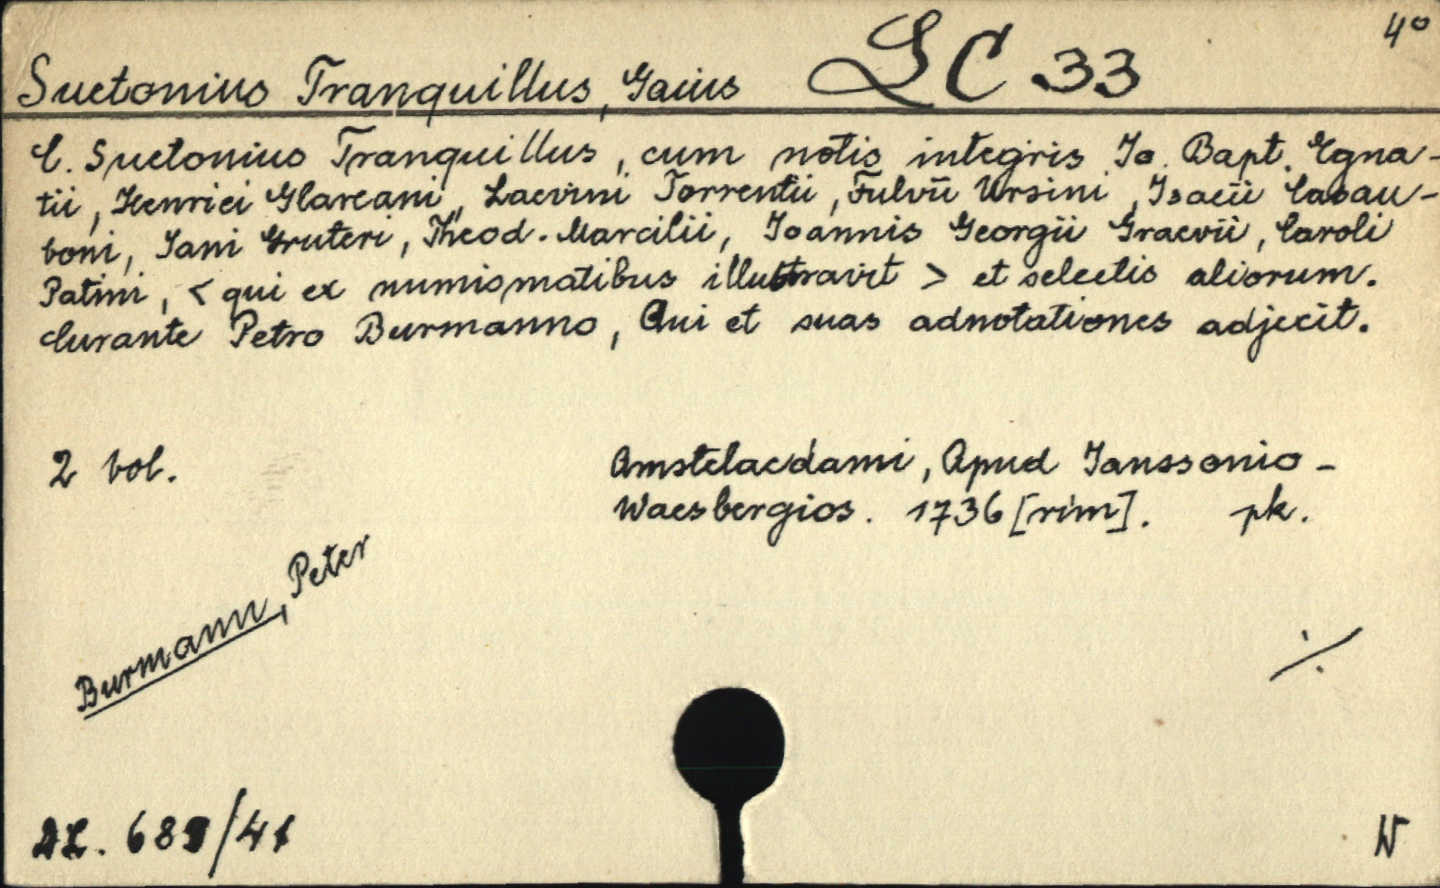 4°
Suetonius Tranquillus, Gaius LC 33
C. Suetonius Tranquillus, cum notis integris Jo. Bapt. Egna-
tii, Henrici Glareani, Laevini Torrentii, Fulvii Ursini, Isacii Casau-
boni, Jani Gruteri, Theod. Marcilii, Joannis Georgii Graevii, Caroli
Patini, < qui ex numismatibus illustravit > et selectis aliorum.
Curante Petro Burmanno, Qui et suas adnotationes adjecit.
2 vol. Amstelaedami, Apud Janssonio-
Waesbergios. 1736 [rim]. pk.
Burmann, Peter
./.
AL. 689/41
W